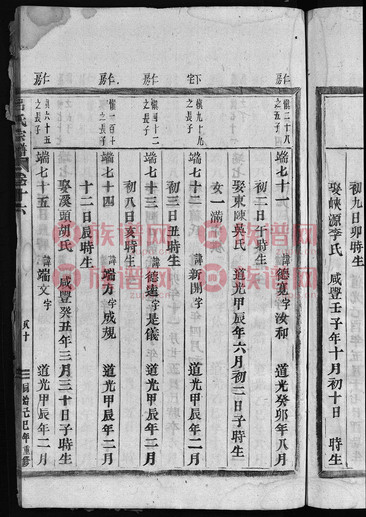 初九日卯時生
娶峽源李氏 咸豐壬子年十月初十日 時生
仁房
慎二十八之五子
端七十一 諱德寬字汝和 道光癸卯年八月
初二日丁午時生
娶東陳吳氏 道光甲辰年六月初二日子時生
女一適
下宅
慎九十九之長子
端七十二 諱新開字 道光甲辰年二月
初三日丑時生
仁房
慎四十二之長子
端七十三 諱德進字是儀 道光甲辰年二月
初八日亥時生
仁房
慎一百十之長子
端七十四 諱端方字成規 道光甲辰年二月
十二日辰時生
娶溪頭胡氏 咸豐癸丑年三月三十日子時生
仁房
慎六十五之長子
端七十五 諱端文字 道光甲辰年二月
呂氏宗譜 卷十六
同治己巳年重修
族谱网